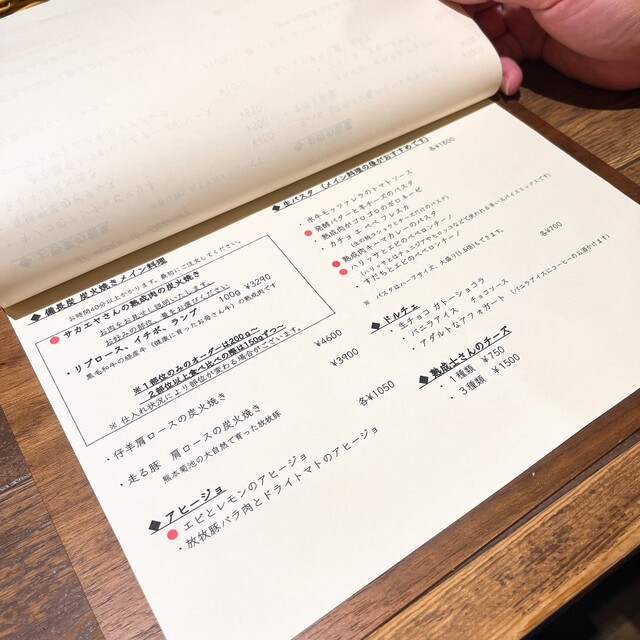 ◆ 備長炭 炭火焼きメイン料理
お時間40分以上かかります。最初にご注文してください。
サカエヤさんの熟成肉の炭火焼き
お肉をお見せし説明いたします。
お好みの部位、量をお選びください。
・リブロース、イチボ、ランプ 100g ¥3290
黒毛和牛の経産牛（健康に育ったお母さん牛）の熟成肉です
※１部位のみのオーダーは200g～
２部位以上食べ比べの際は150gずつ～
※ 仕入れ状況により部位が変わる場合がございます。
・仔羊肩ロースの炭火焼き ¥4600
・走る豚 肩ロースの炭火焼き ¥3900
熊本菊池の大自然で育った放牧豚
◆アヒージョ 各¥1050
・エビとレモンのアヒージョ
・放牧豚バラ肉とドライトマトのアヒージョ
◆生パスタ （メイン料理の後がおすすめです） 各¥1800
・水牛モッツアレラのトマトソース
・発酵バターと茎チーズのパスタ
・熟成肉ゴロゴロボロネーゼ
・カチョエペペ フレスカ
・熟成肉キーマカレーのパスタ
・ハリッサとエビのペペロンチーノ
・すだちとエビのペペロンチーノ
※ パスタはハーフサイズ、大盛り(1.5倍)してきます。
◆ドルチェ 各¥700
・生チョコ ガトーショコラ
・バニラアイス チョコソート
・アダルトなアフォガート（バニラアイスにコーヒーのお酒かけます）
◆熟成士さんのチーズ
・１種類 ¥750
・３種類 ¥1500